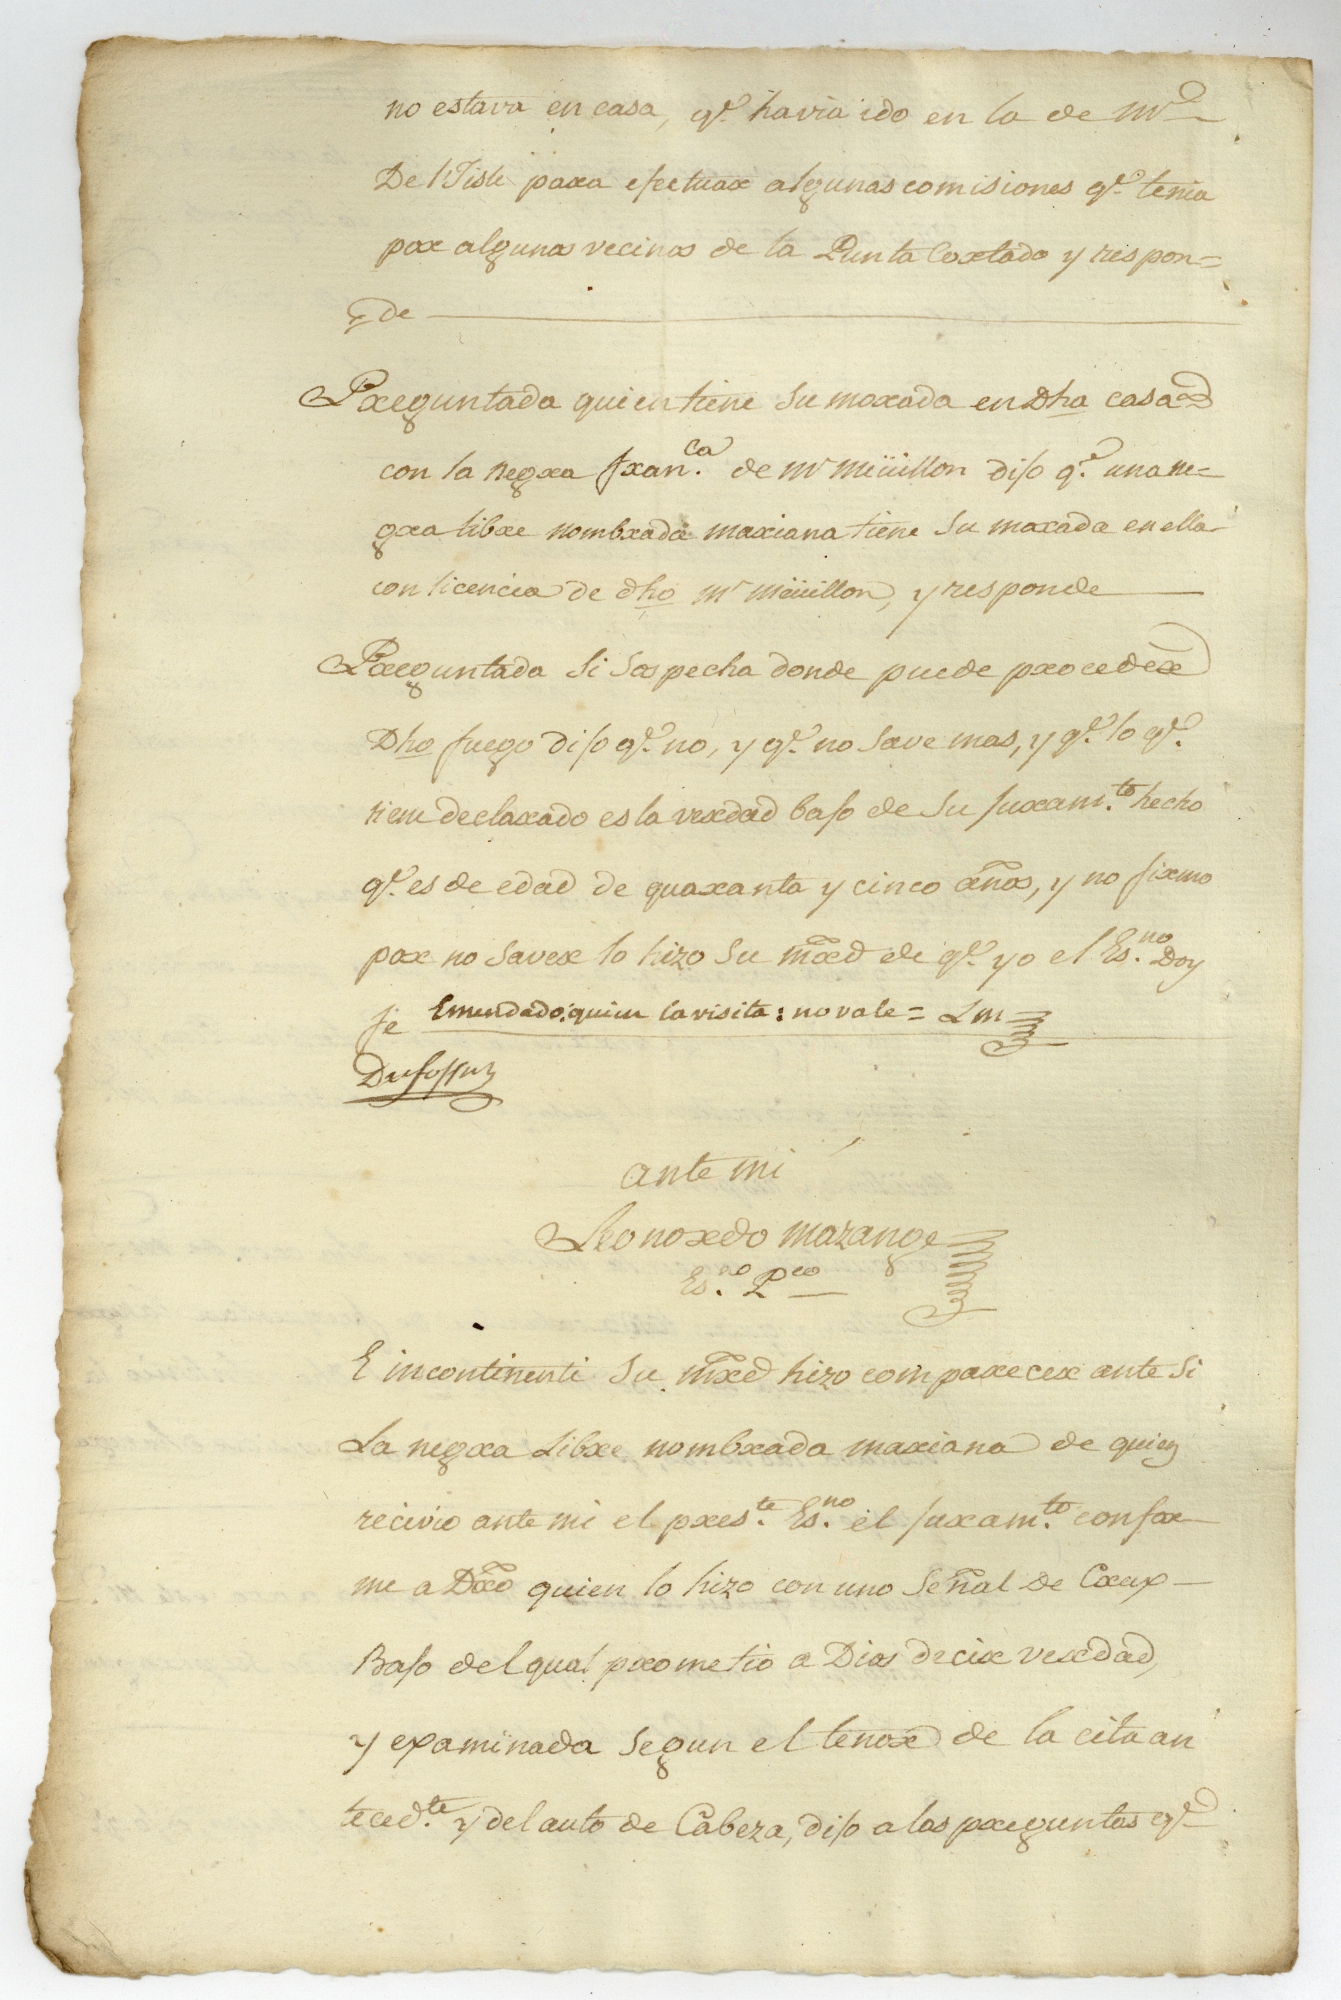 no estava en casa, q.e havia ido en la de Mr
De l'Isle para efectuar algunas comisiones q.e tenia
por algunos vecinos de la Punta Cortado y respon=
de
Preguntada quien tiene su morada en Dha casa
con la negra fran.ca de Mr Meüillon dijo q.e una ne=
gra libre nombrada mariana tiene su morada en ella
con licencia de dho Mr Meüillon, y responde
Preguntada si sospecha donde puede proceder
Dho fuego dijo q.e no, y q.e no save mas, y q.e lo q.e
tiene declarado es la verdad bajo de su juram.to hecho
q.e es de edad de quaranta y cinco años, y no firmo
por no saver lo hizo su mrd de q.e yo el Es.no Doy
fe Emendado: quien la visita: no vale =
Dufossat
ante mi
Leonardo mazange
Es.no P.co
E incontinenti su mrd hizo comparecer ante si
La negra Libre nombrada mariana de quien
recivio ante mi el pres.te Es.no el juram.to confor
me a Dro quien lo hizo con uno señal de Crux
Bajo del qual prometio a Dios decir verdad,
y examinada segun el tenor de la cita an
teced.te y del auto de Cabeza, dijo a las preguntas q.e